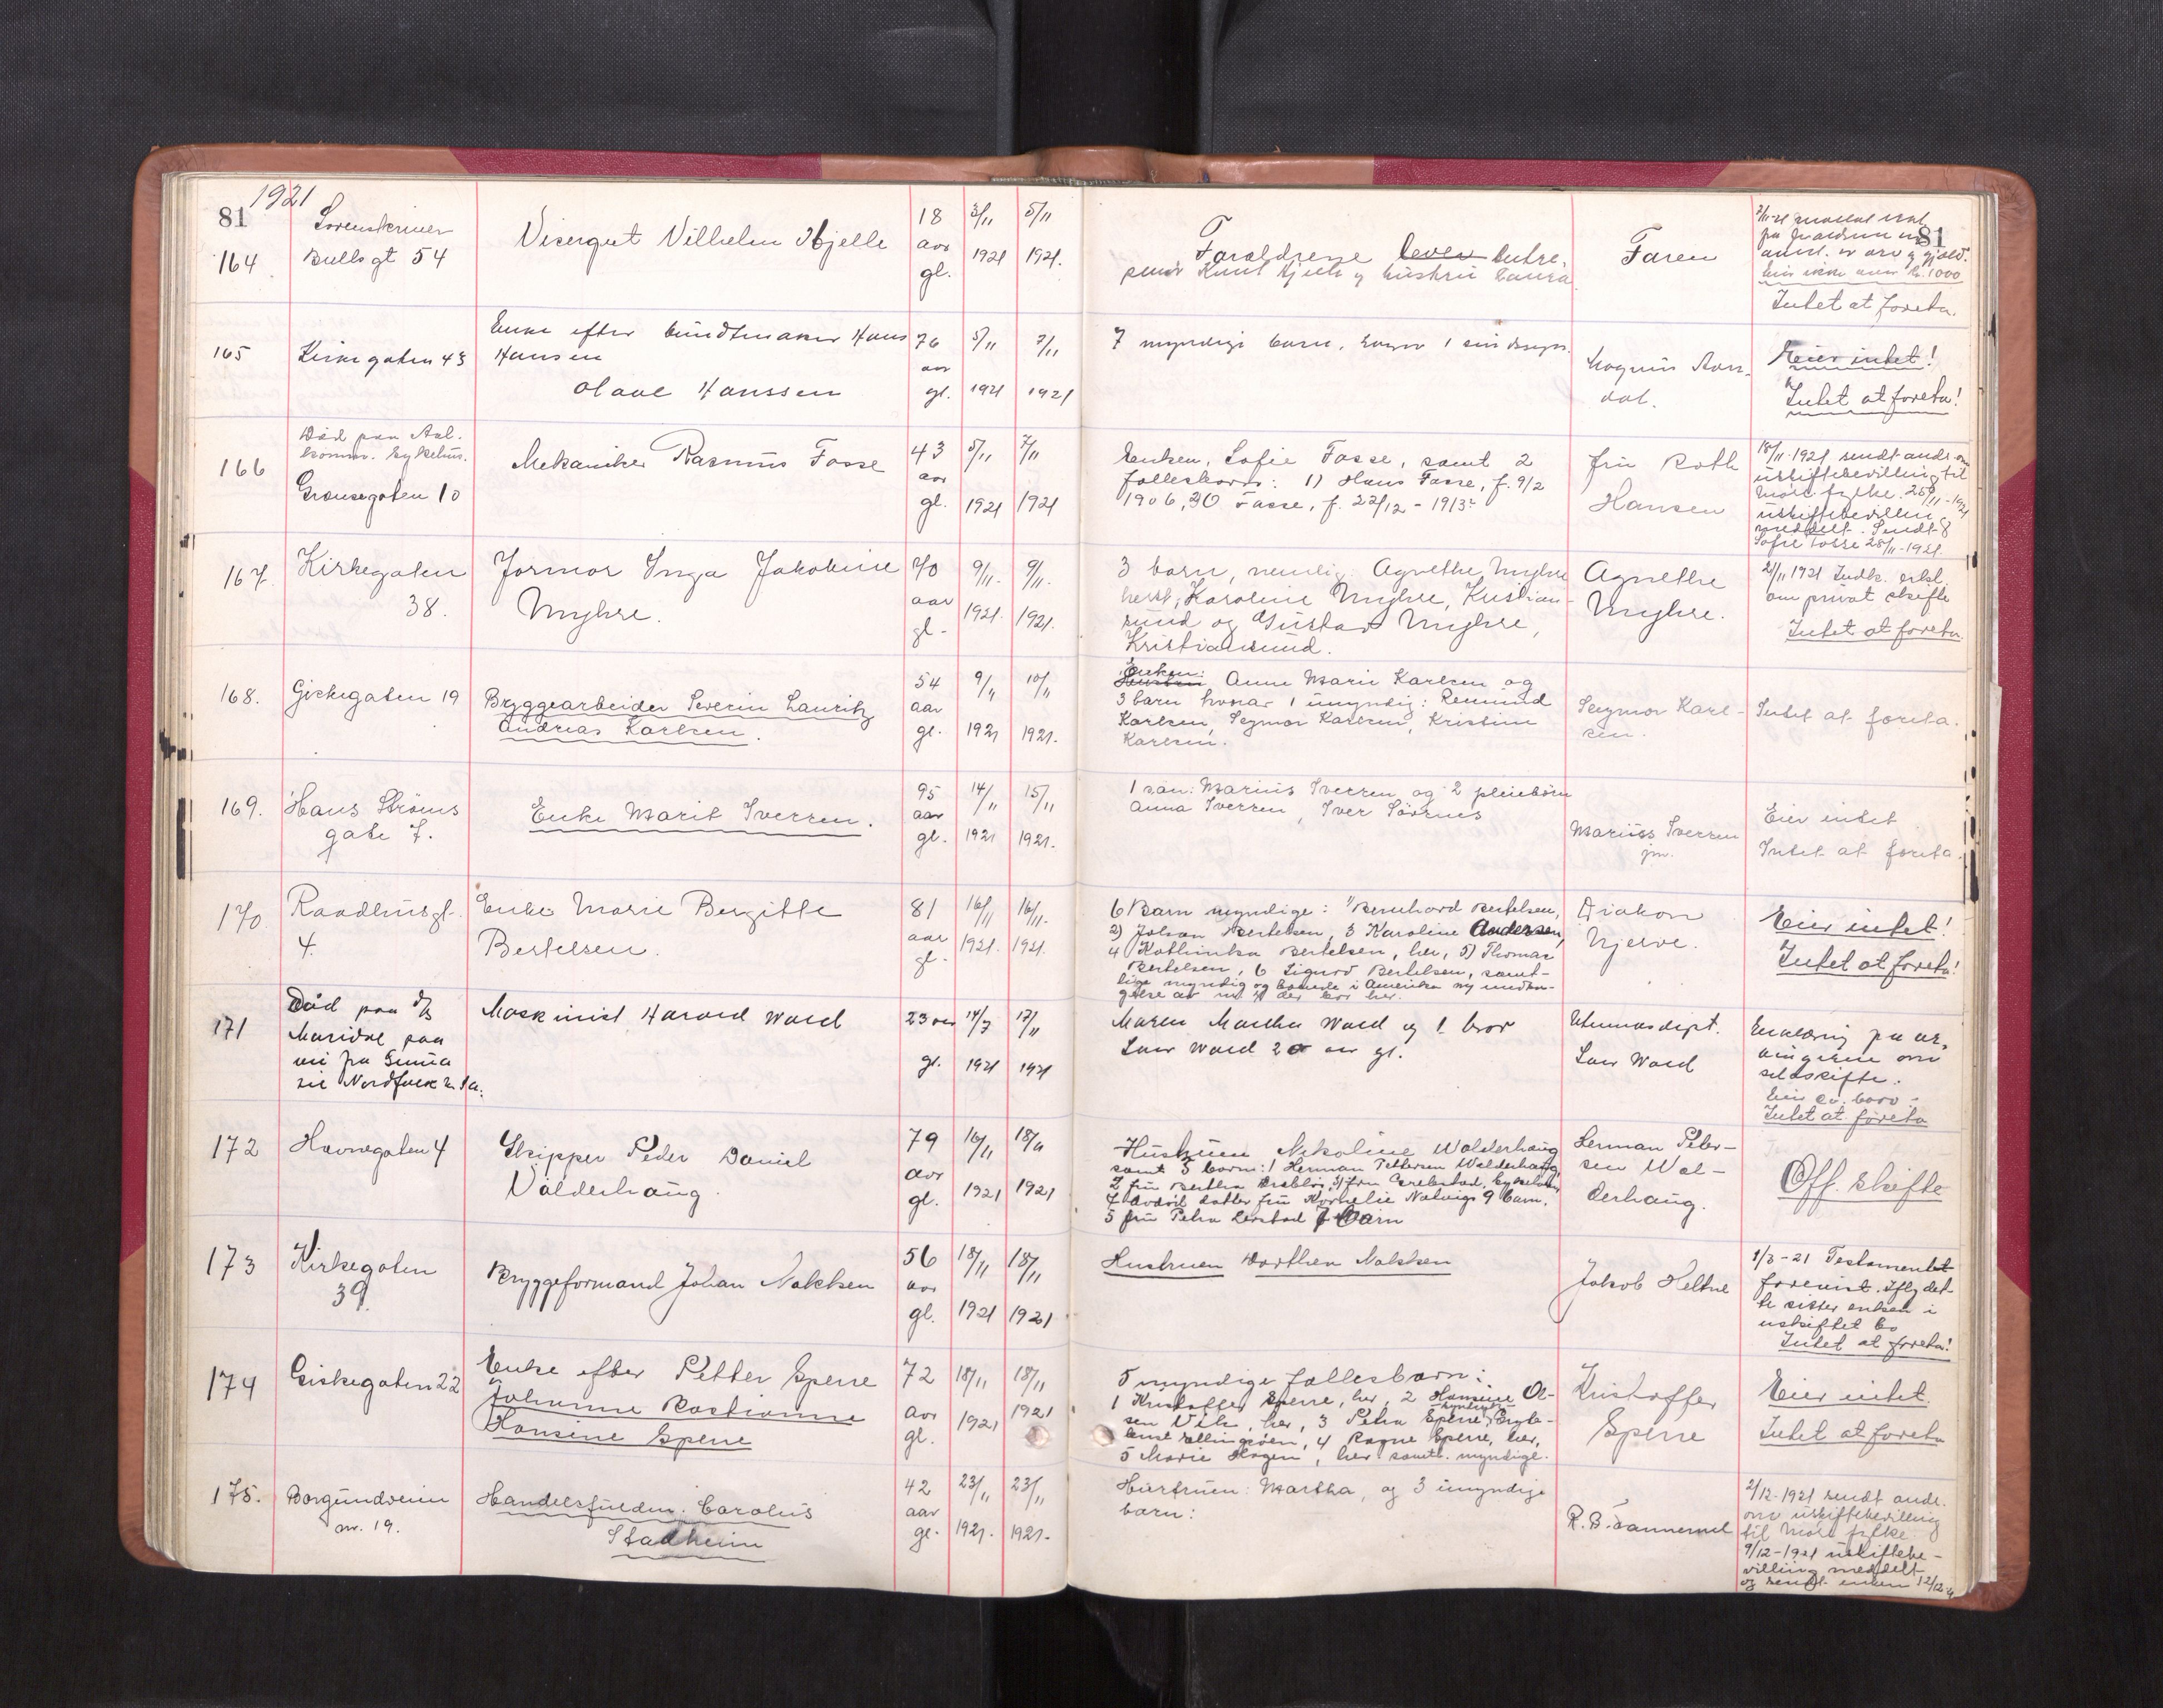 81 1921
164 Sorenskriver
Bulls gt 54
Visergut Vilhelm Hjelle
18 aar gl.
3/11 1921
5/11 1921.
Forældrene lever
samt Knut Hjelle og hustru Laura
Faren
81
Intet at foreta.
165 Kirkegaten 43
Enke efter bundtmaker Hans
Hansen
Olave Hanssen
76 aar gl.
5/11 1921
7/11 1921
7 myndige barn, hvorav 1 sindssyk.
Magnus Aarsdal.
Eier intet!
Intet at foreta!
166 Død paa Aal.
komm. sykehus.
Grensegaten 10
Mekaniker Rasmus Fosse
43 aar gl.
5/11 1921
7/11 1921
Enken, Sofie Fosse, samt 2
fællesbarn: 1) Hans Fosse, f. 9/2
1906, Fosse, f. 22/12 - 1913
Fru Roth
Hansen
18/11-1921 sendt andr. om
uskiftebevilling til
Møre fylke. 25/11-1921
uskiftebevilling
meddelt. Sendt
Sofie Fosse 28/11-1921.
167. Kirkegaten
38.
Jormor Inga Jakobine
Myhre.
70 aar gl.
9/11. 1921.
9/11. 1921.
3 barn, nemlig: Agnethe Myhre
her, Karoline Myhre, Kristian-
sund og Gustav Myhre,
Kristiansund.
Agnethe
Myhre.
21/11 1921 Indk. erkl.
om privat skifte
Intet at foreta.
168. Giskegaten 19
Bryggearbeider Severin Lauritz
Andreas Karlsen.
54 aar gl.
9/11 1921
10/11 1921.
Enken:
Anne Marie Karlsen og
3 barn hvorav 1 umyndig: Remund
Karlsen, Segmor Karlsen, Kristine
Karlsen.
Segmor Karl-
sen.
Intet at foreta.
169. Hans Strøms
gate 7.
Enke Marit Iversen.
95 aar gl.
14/11 1921
15/11 1921.
1 søn: Marius Iversen og 2 pleiebørn
Anna Iversen, Iver Sørnes
Marius Iversen
jnr.
Eier intet
Intet at foreta.
170. Raadhusgt.
4.
Enke Marie Bergitte
Bertelsen.
81 aar gl.
16/11 1921.
16/11. 1921.
6 Barn myndige: 1) Bernhard Bertelsen,
2) Johan Bertelsen, 3 Karoline Andersen,
4 Kathinka Bertelsen, her, 5) Thomas
Bertelsen, 6 Sigurd Bertelsen, samt-
lige myndig og boende i Amerika undta-
gelse av nr 4 der bor her.
Diakon
Njerve.
Eier intet!
Intet at foreta!
171 Død paa d/s
Maridal paa
vei fra
til Nordfolk U.S.A.
Maskinist Harald Wold
23 aar gl.
14/7 1921
17/11 1921
Maren Martha Wold og 1 bror
Lars Wold 20 aar gl.
Lars Wold
Erklæring fra ar-
vingerne om
selvskifte.
Intet at foreta
172 Havnegaten 4
Skipper Peder Daniel
Valderhaug
79 aar gl.
16/11 1921
18/11 1921
Hustruen Nikoline Walderhaug
samt 5 barn: 1 Herman Pettersen Walderhaug,
5 fru Petra Lerstad 7 Barn
Herman Peter-
sen Wal-
derhaug.
Off. skifte
173 Kirkegaten
39.
Bryggeformand Johan Nakken
56 aar gl.
18/11 1921
18/11 1921
Hustruen Dorthea Nakken
Jakob Heltne
1/3-21 Testamentet
forevist. Iflg det-
te sitter enken i
uskiftet bo
Intet at foreta!
174 Giskegaten 22
Enke efter Petter Sperre
Johanne Bastianne
Hansine Sperre
72 aar gl.
18/11 1921
18/11 1921
5 myndige fællesbarn:
1 Kristoffer Sperre, her, 2 Hansine Ol-
sen Vik, her, 3 Petra Sperre,
Ellingsøen, 4 Ragna Sperre, her,
5 Marie Hagen, her samtl. myndige.
Kristoffer
Sperre
Eier intet.
Intet at foreta
175. Borgundveien
nr. 19.
Handelsfuldm. Carolus
Stadheim
42 aar gl.
23/11 1921.
23/11 1921.
Hustruen: Martha, og 3 umyndige
barn:
R. B. Tannernel
2/12-1921 sendt andr.
om uskiftebevilling
til Møre fylke
9/12-1921 uskiftebe-
villing meddelt
og sendt enken 12/12-21